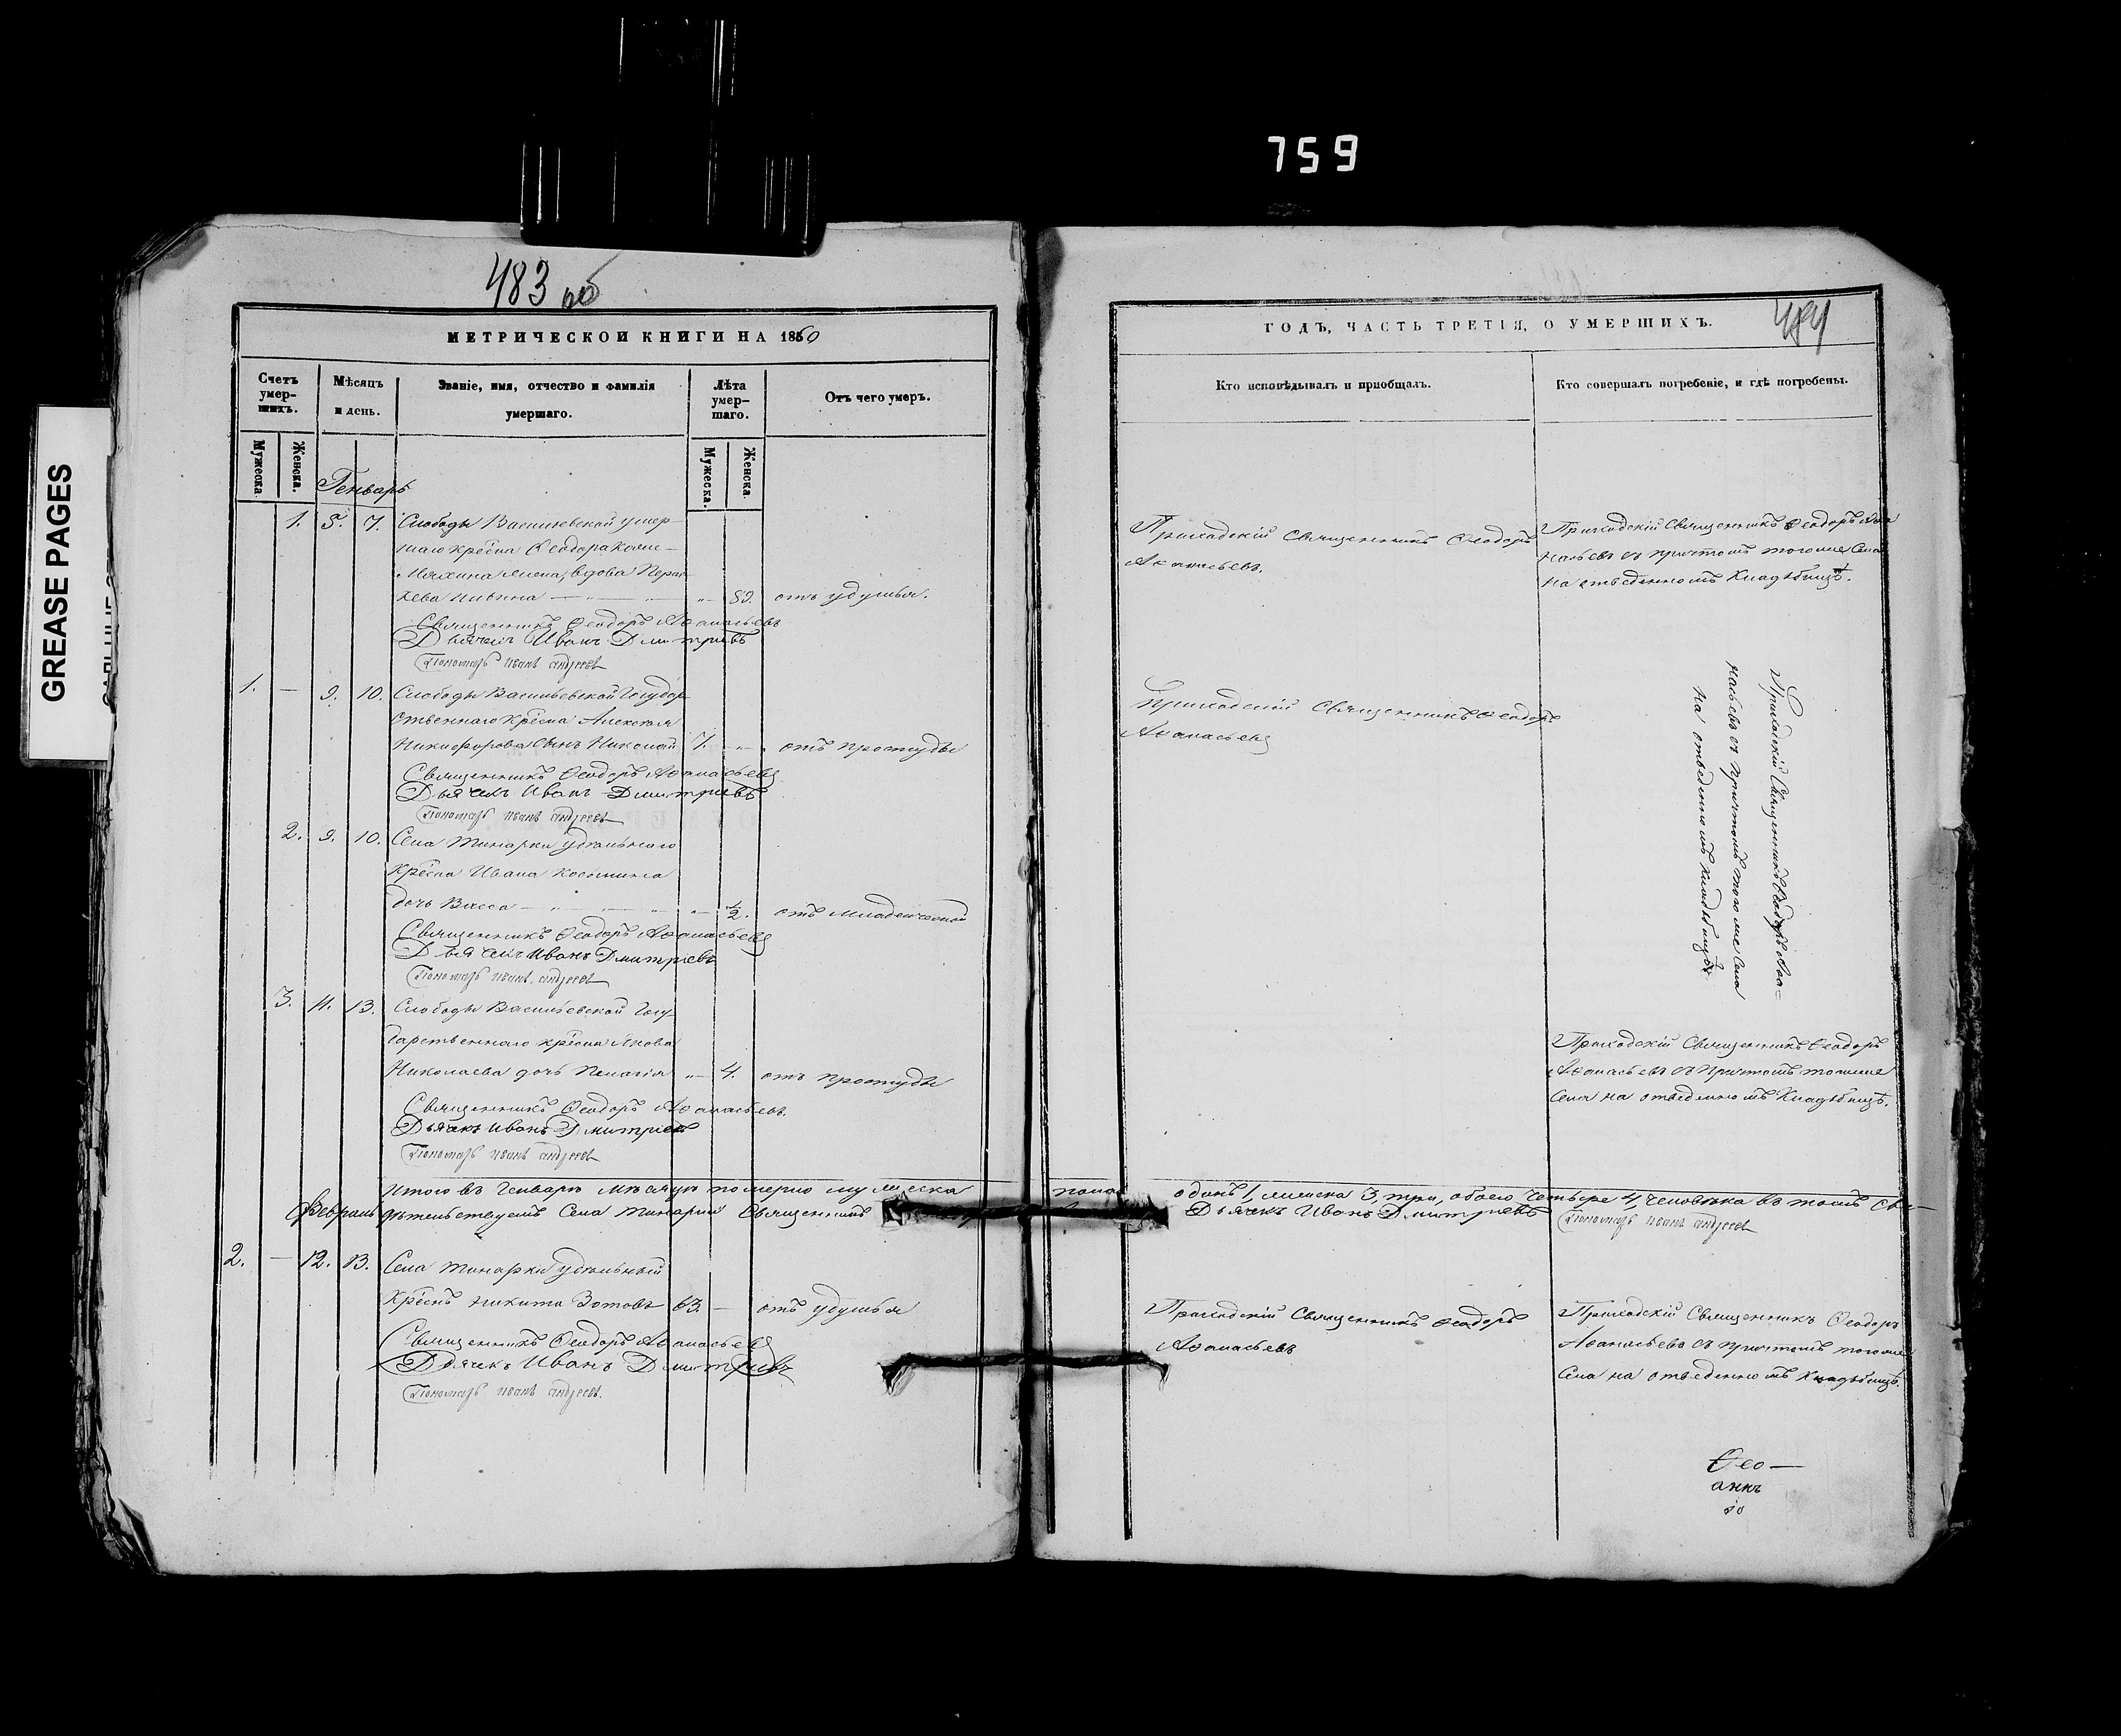 759
GREASE PAGES
483 об
МЕТРИЧЕСКОЙ КНИГИ НА 1860
Счетъ умер-шихъ.
Мѣсяцъ и день.
Званіе, имя, отчество и фамилія умершаго.
Лѣта умер-шаго.
Отъ чего умеръ.
Мужеска.
Женска.
Мужеска.
Женска.
Генварь
1. 5. 7. Слободы Васильевской умер-
шаго кресна Ѳеодора
жена, вдова
отъ удушья.
Священникъ Ѳеодоръ Аѳанасьевъ
Дьячекъ Иванъ Дмитріевъ
Пономарь Иванъ Андреевъ
1. — 9. 10. Слободы Васильевской Государ-
ственнаго кресна Алексѣя
Никифорова сынъ Николай 7. отъ простуды
Священникъ Ѳеодоръ Аѳанасьевъ
Дьячекъ Иванъ Дмитріевъ
Пономарь Иванъ Андреевъ
2. 9. 10. Села Тинарки удѣльнаго
кресна Ивана Косьмина
дочь Васса — 1/2. отъ младенческой
Священникъ Ѳеодоръ Аѳанасьевъ
Дьячекъ Иванъ Дмитріевъ
Пономарь Иванъ Андреевъ
3. 11. 13. Слободы Васильевской Госу-
дарственнаго кресна Якова
Николаева дочь Пелагія 4. отъ простуды
Священникъ Ѳеодоръ Аѳанасьевъ.
Дьячекъ Иванъ Дмитріевъ
Пономарь Иванъ Андреевъ
Итого въ Генварѣ мѣсяцѣ померло мужеска пола
Февраль
дѣтельствуетъ Села Тинарки Священникъ
2. — 12. 13. Села Тинарки удѣльный
креснъ Никита Зотовъ 63. — отъ удушья
Священникъ Ѳеодоръ Аѳанасьевъ
Дьячекъ Иванъ Дмитріевъ
Пономарь Иванъ Андреевъ.
484
ГОДЪ, ЧАСТЬ ТРЕТІЯ, О УМЕРШИХЪ.
Кто исповѣдывалъ и приобщалъ.
Кто совершалъ погребеніе, и гдѣ погребены.
Приходскій Священникъ Ѳеодоръ
Аѳанасьевъ.
Приходскій Священникъ Ѳеодоръ Аѳа
насьевъ съ причтомъ тогоже Села
на отведенномъ Кладбищѣ.
Приходскій Священникъ Ѳеодоръ
Аѳанасьевъ
Приходскій Священникъ Ѳеодоръ Аѳа=
насьевъ съ причтомъ тогоже Села
на отведенномъ кладбищѣ
Приходскій Священникъ Ѳеодоръ
Аѳанасьевъ съ причтомъ тогоже
Села на отведенномъ Кладбищѣ.
одинъ 1, женска 3, три, обоего четыре 4, человѣка въ томъ сви-
Дьячекъ Иванъ Дмитріевъ
Пономарь Иванъ Андреевъ
Приходскій Священникъ Ѳеодоръ
Аѳанасьевъ
Приходскій Священникъ Ѳеодоръ
Аѳанасьевъ съ причтомъ тогоже
Села на отведенномъ Кладбищѣ.
Ѳео—